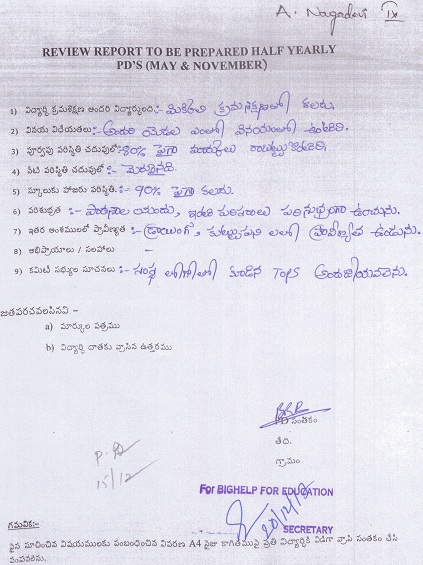 A. Nagadevi IX
REVIEW REPORT TO BE PREPARED HALF YEARLY
PD'S (MAY & NOVEMBER)
1) విద్యార్థి క్రమశిక్షణ అందరి విద్యార్థులది:- మిక్కిలి క్రమశిక్షణలో కలదు.
2) వినయ విధేయతలు:- అందరి యెడల ఎంతో వినయంతో ఉంటుంది.
3) పూర్వపు పరిస్థితి చదువులో:- 80% పైగా మార్కులు
4) నేటి పరిస్థితి చదువులో:- మెరుగైనది.
5) స్కూలుకు హాజరు పరిస్థితి:- 90% పైగా కలదు.
6) పరిశుభ్రత :- పాఠశాల యందు, ఇంటి పరిసరాలు పరిశుభ్రంగా ఉంచును.
7) ఇతర అంశములలో ప్రావీణ్యత :- డ్రాయింగ్, కుట్టుపని లలో ప్రావీణ్యత ఉండును.
8) అభిప్రాయాలు / సలహాలు -
9) కమిటీ సభ్యుల సూచనలు :- సంస్థ లోగోలో కూడిన Tops అందజేయవలెను.
జతపరచవలసినవి –
a) మార్కుల పత్రము
b) విద్యార్థి దాతకు వ్రాసిన ఉత్తరము
PD సంతకం
తేది.
గ్రామం
15/12
For BIGHELP FOR EDUCATION
20/12/12
SECRETARY
గమనిక:-
పైన సూచించిన విషయములకు సంబంధించిన వివరణ A4 సైజు కాగితముపై ప్రతి విద్యార్థికి విడిగా వ్రాసి సంతకం చేసి
పంపవలెను.